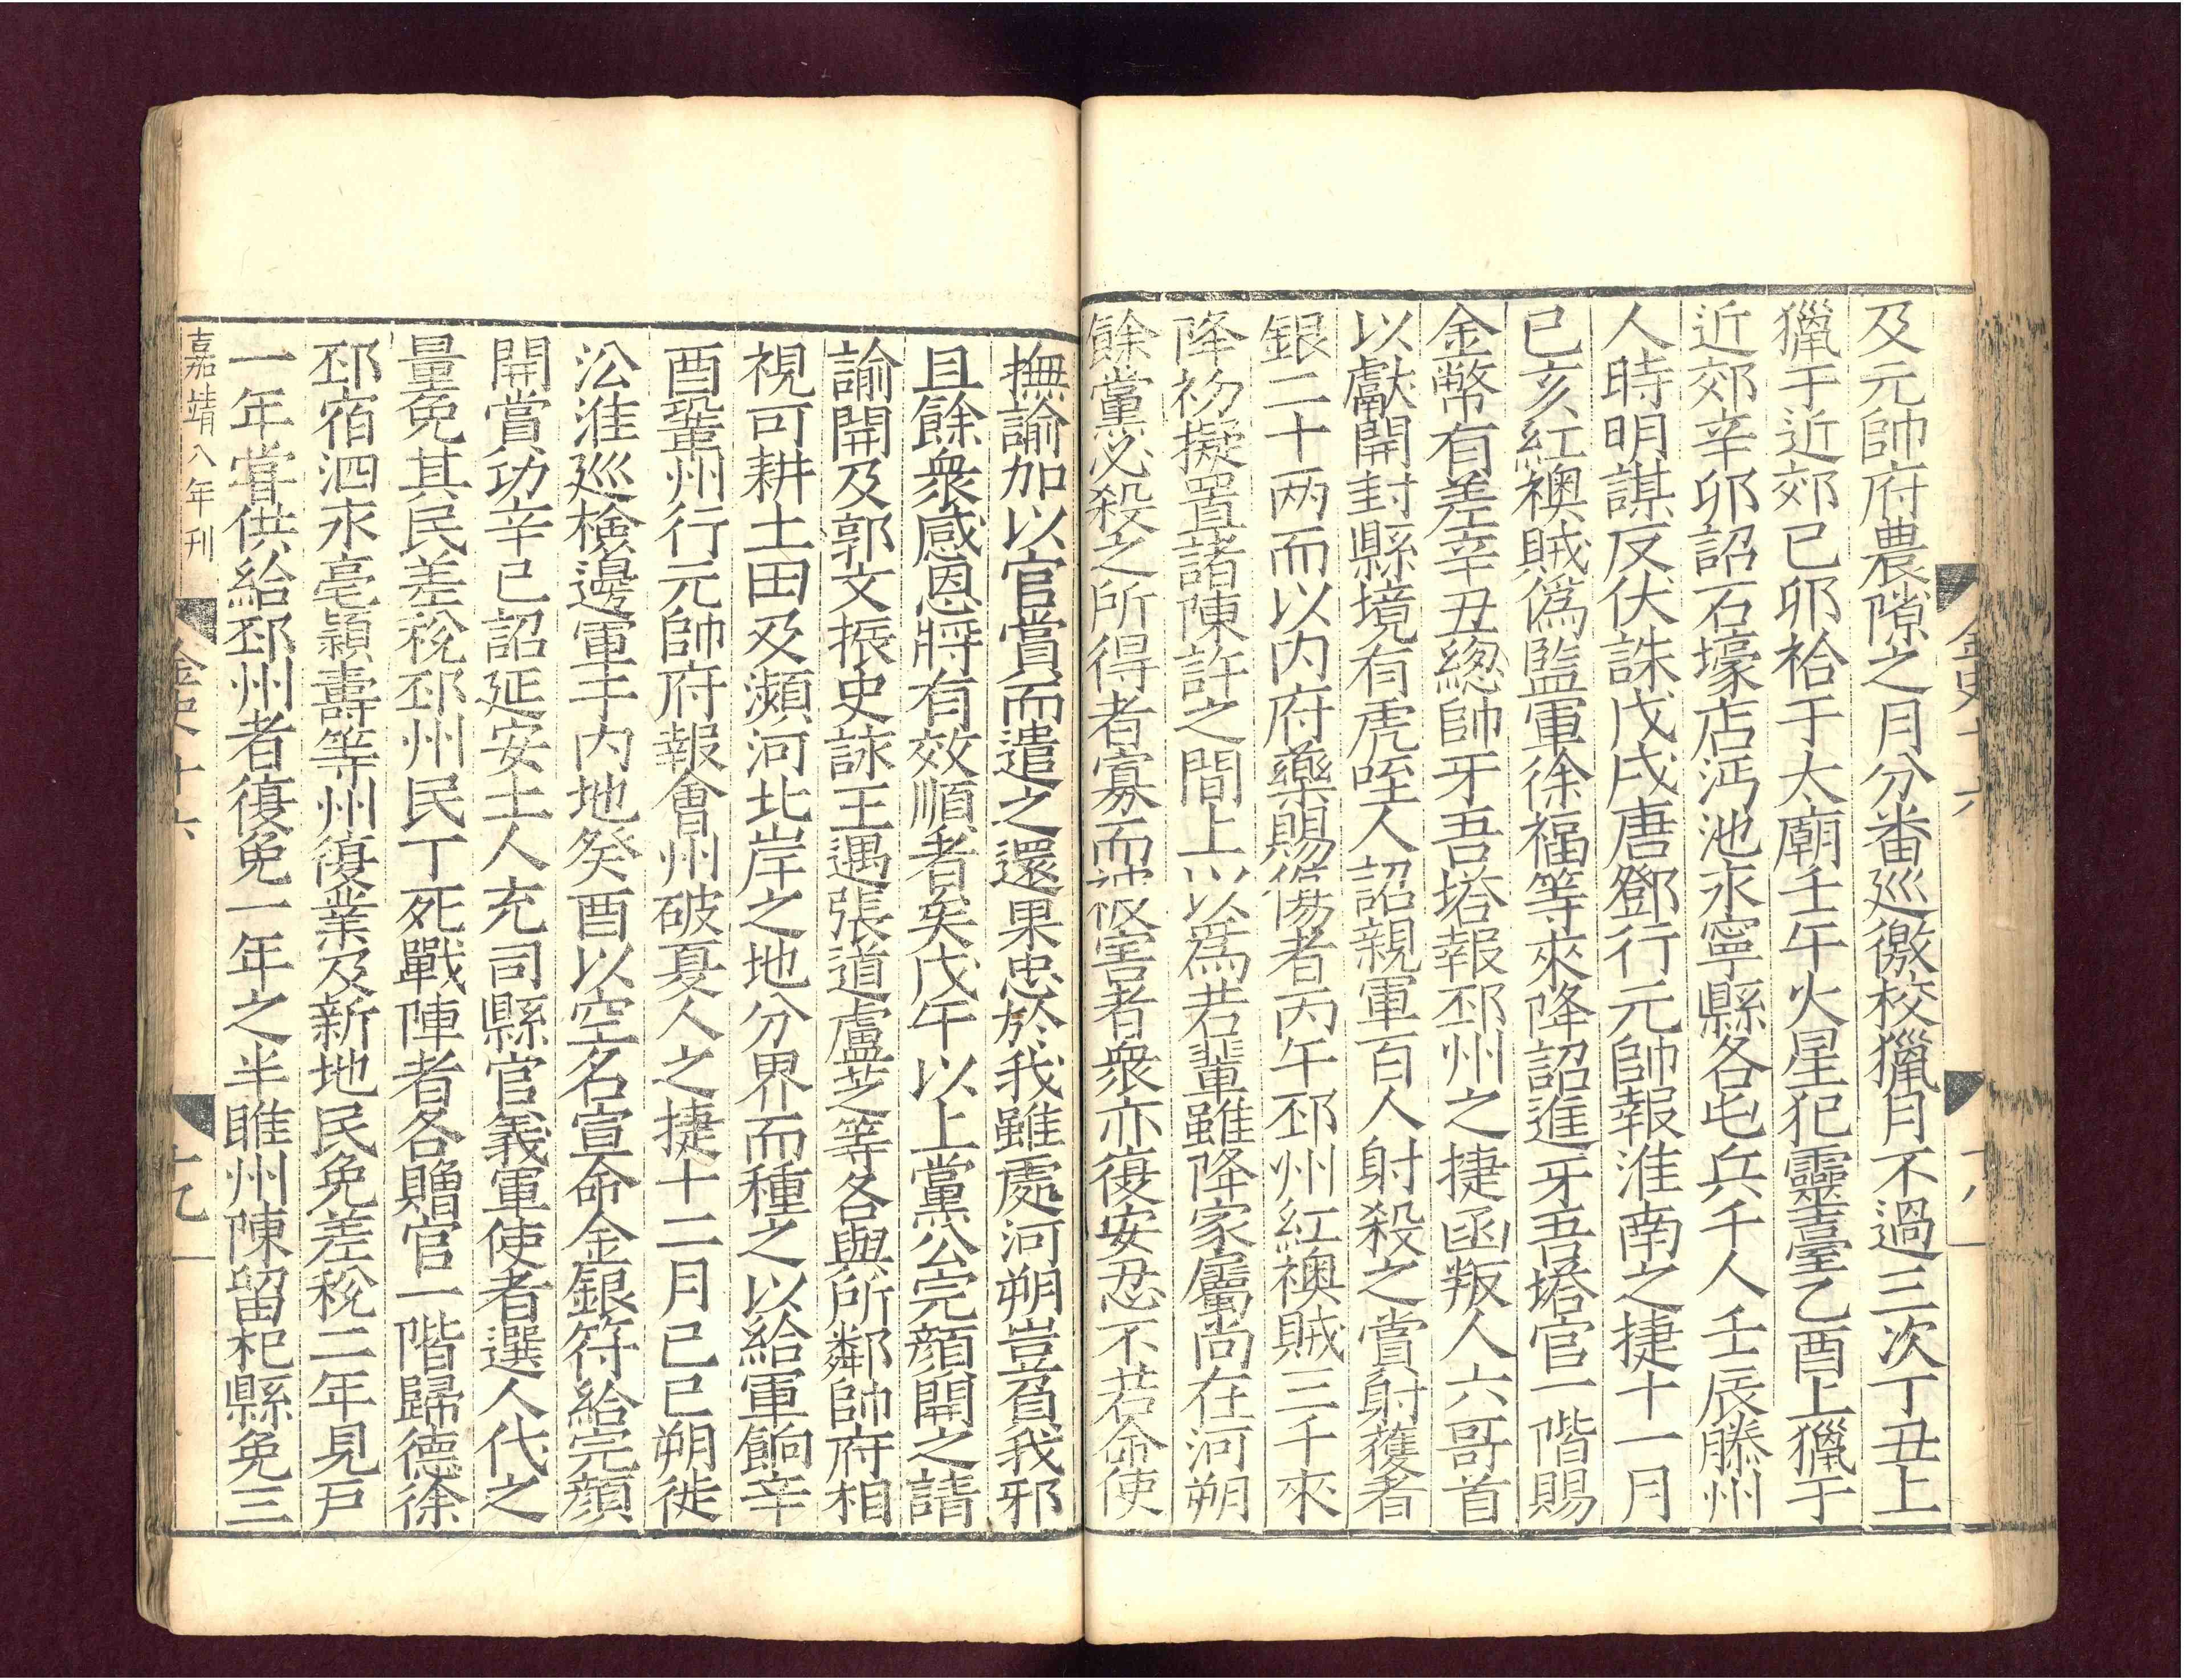 金史十六
十八
及元帥府農隙之月分番巡徼校獵月不過三次丁丑上
獵于近郊己卯祫于太廟壬午火星犯靈臺乙酉上獵于
近郊辛卯詔石壕店澠池永寧縣各屯兵千人壬辰滕州
人時明謀反伏誅戊戌唐鄧行元帥報淮南之捷十一月
己亥紅襖賊偽監軍徐福等來降詔進牙吾塔官一階賜
金幣有差辛丑緫帥牙吾塔報邳州之捷函叛人六哥首
以獻開封縣境有虎咥人詔親軍百人射殺之賞射獲者
銀二十两而以内府藥賜傷者丙午邳州紅襖賊三千來
降初擬置諸陳許之間上以為若輩雖降家屬尚在河朔
餘黨必殺之所得者寡而被害者衆亦復安忍不若命使
撫諭加以官賞而遣之還果忠於我雖處河朔豈負我邪
且餘衆感恩將有效順者矣戊午以上黨公完顏開之請
諭開及郭文振史詠王遇張道盧芝等各與所鄰帥府相
視可耕土田及瀕河北岸之地分界而種之以給軍餉辛
酉鞏州行元帥府報會州破夏人之捷十二月己巳朔徙
沿淮巡檢邊軍于内地癸酉以空名宣命金銀符給完顏
開賞功辛巳詔延安土人充司縣官義軍使者選人代之
量免其民差稅邳州民丁死戰陣者各贈官一階歸德徐
邳宿泗永亳潁壽等州復業及新地民免差稅二年見戸
一年嘗供給邳州者復免一年之半睢州陳留杞縣免三
嘉靖八年刊
金史十六
十九